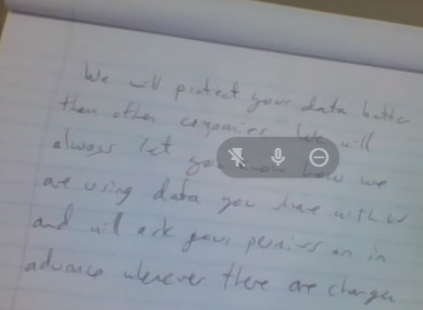 We will protect your data better
than other companies. We will
always let you know how we
are using data you share with us
and will ask your permission in
advance whenever there are changes